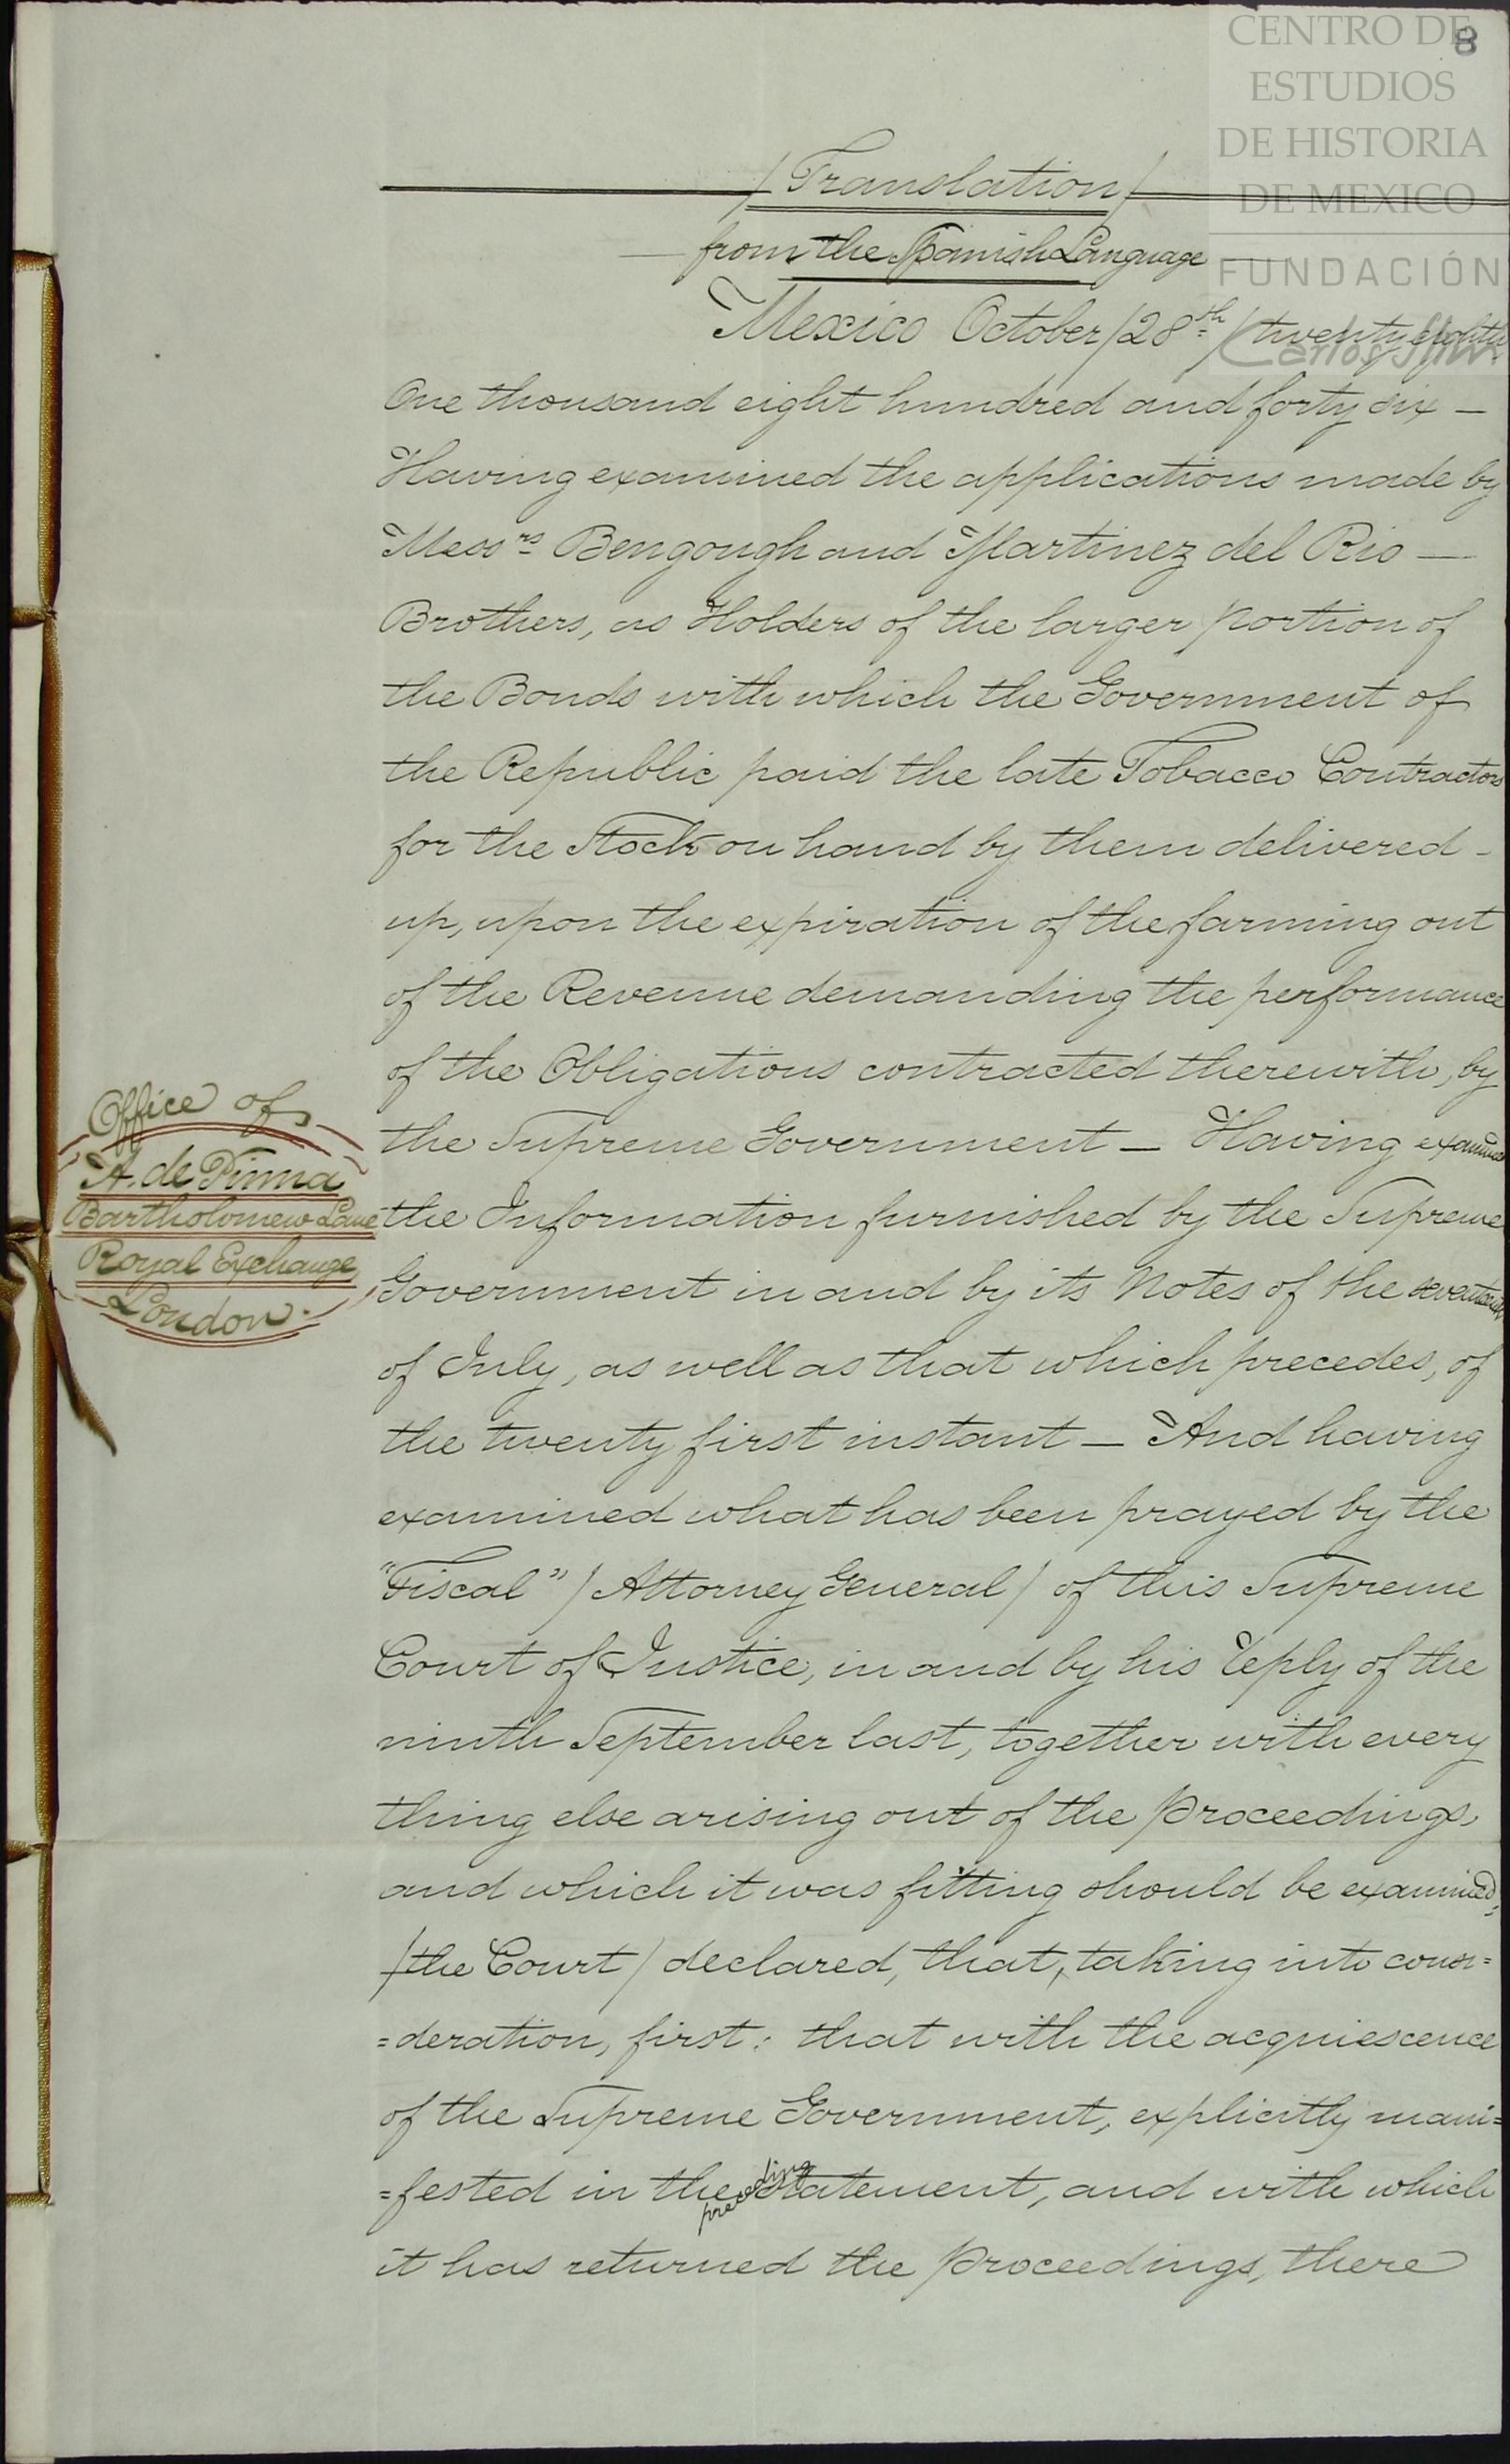 8
CENTRO DE
ESTUDIOS
DE HISTORIA
DE MEXICO
FUNDACIÓN
Carlos Slim
/Translation/
from the Spanish Language
Mexico October /28th/ twenty eighth
One thousand eight hundred and forty six –
Having examined the applications made by
Messrs Bengough and Martinez del Rio —
Brothers, as Holders of the larger portion of
the Bonds with which the Government of
the Republic paid the late Tobacco Contractors
for the Stock on hand by them delivered –
up, upon the expiration of the farming out
of the Revenue demanding the performance
of the Obligations contracted therewith, by
the Supreme Government – Having examined
the Information furnished by the Supreme
Government in and by its Notes of the seventeenth
of July, as well as that which precedes, of
the twenty first instant – And having
examined what has been prayed by the
"Fiscal" / Attorney General / of this Supreme
Court of Justice, in and by his reply of the
ninth September last, together with every
thing else arising out of the Proceedings,
and which it was fitting should be examined;
/the Court/ declared, that, taking into consi=
=deration, first: that with the acquiescence
of the Supreme Government, explicitly mani=
=fested in the preceding Statement, and with which
it has returned the Proceedings, there
Office of
A. de Pinna
Bartholomew Lane
Royal Exchange
London.